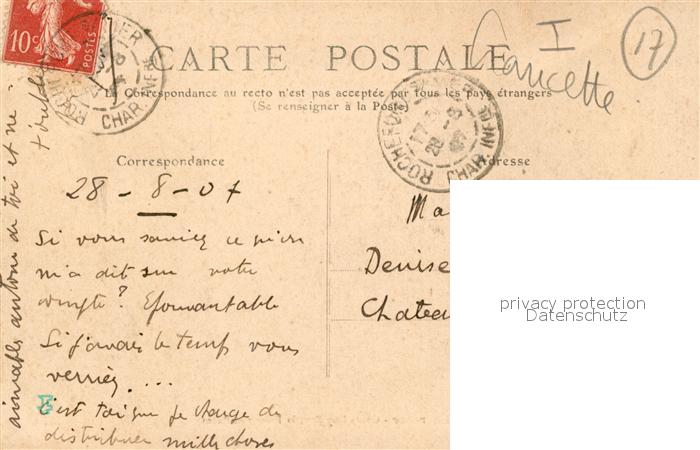 10c
POSTES
CARTE POSTALE
La Correspondance au recto n'est pas acceptée par tous les pays étrangers
(Se renseigner à la Poste)
I
17
ROCHEFORT
17
28 - 8
CHAR. INFRE
Correspondance
Adresse
28 - 8 - 07
Si vous saviez ce qu'on
m'a dit sur votre
compte? Epouvantable
Si j'avais le temps vous
verriez....
C'est toi que je charge de
distribuer mille choses
aimables autour de toi et ne
Ma
Denise
Chateau
privacy protection
Datenschutz